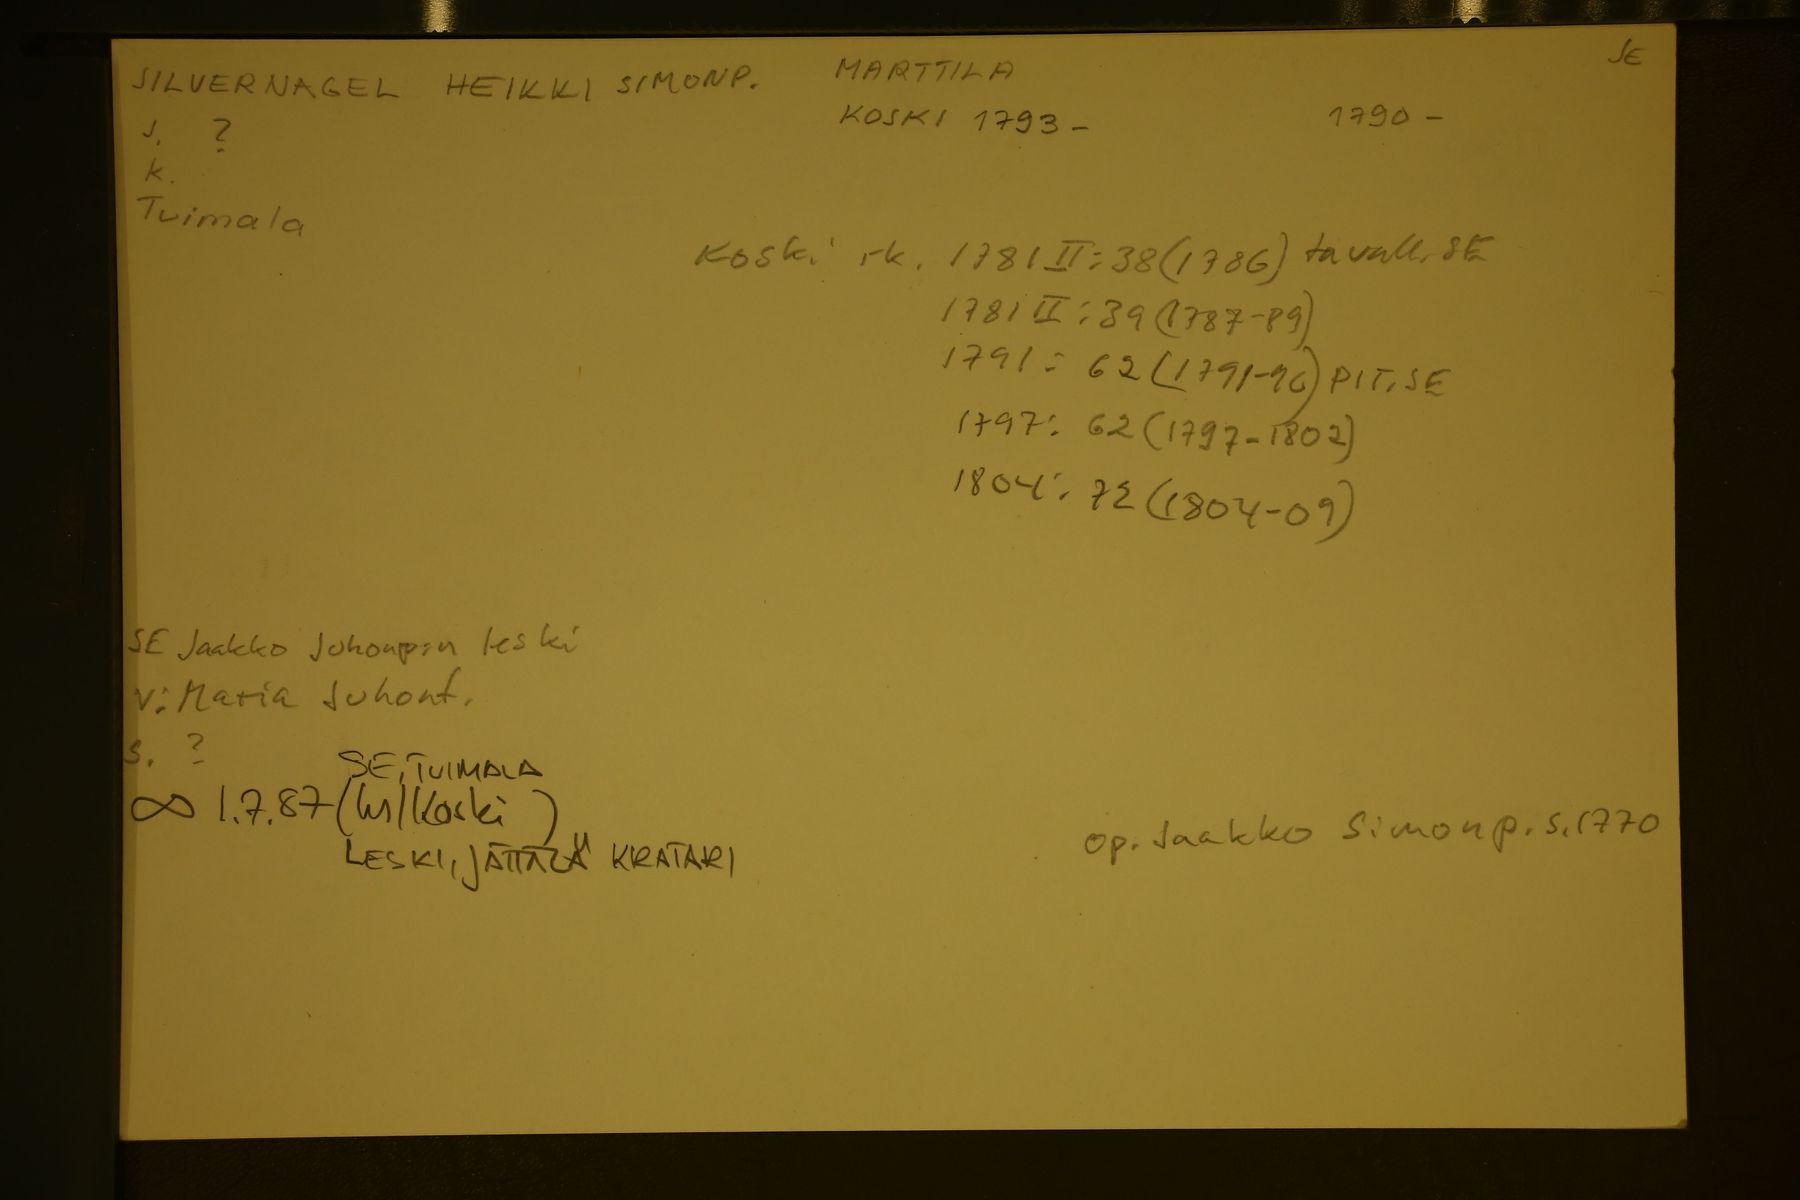 SE
SILVERNAGEL HEIKKI SIMONP. MARTTILA
KOSKI 1793- 1790-
s. ?
k.
Tuimala
Koski rk. 1781 II:38 (1786) tavall. SE
1781 II:39 (1787-89)
1791: 62 (1791-96) PIT. SE
1797: 62 (1797-1802)
1804: 72 (1804-09)
SE Jaakko Juhonp:n leski
v: Maria Juhont.
s. ?
SE, TUIMALA
∞ 1.7.87 (hs/Koski)
LESKI, JÄTTÄLÄ KRATARI
op. Jaakko Simonp. s. 1770